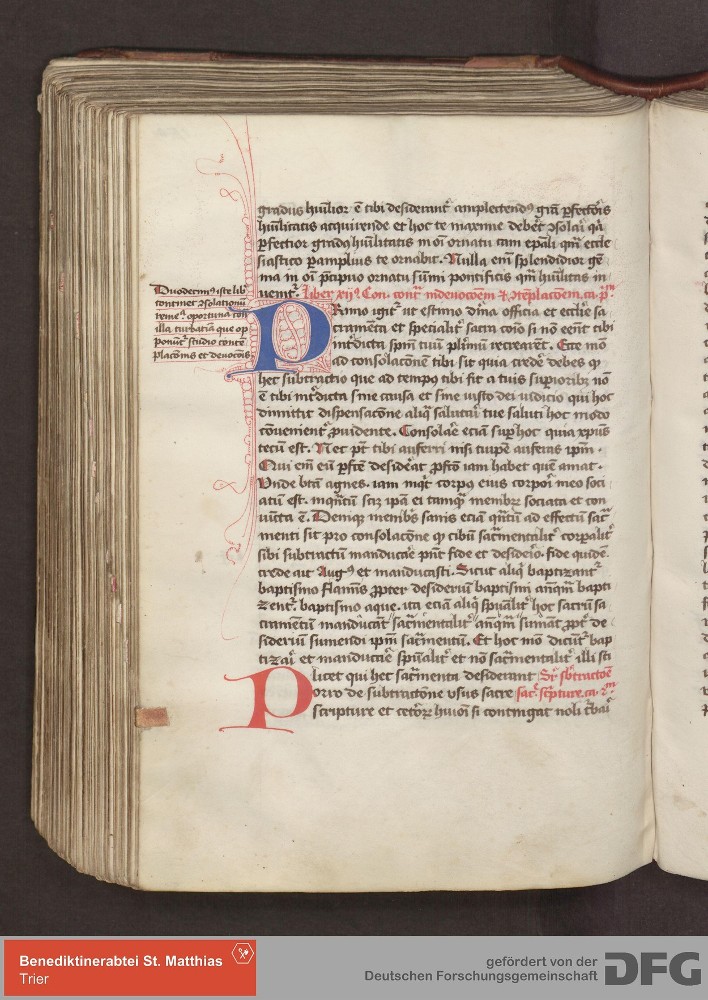 gradus hūilior ē tibi desiderant᷑ amplectendꝰ grā ꝑfectōis
hūilitatis acquirende et hoc te maxime debet ꝯsolari qꝛ
ꝑfectior gradꝰ hūilitatis in oī ornatu tam epāli qm̄ eccle
siastico ꝑamplius te ornabit. Nulla em̄ splendidior gē
ma in oī p̄cipuo ornatu sūmi pontificis qm̄ hūilitas in
uenit᷑. Liber xijꝰ. Con. cont᷑ indeuocōem ⁊ ꝯtēplacōem. ca. pᵐ
Duodecimꝰ iste lib᷑
continet ꝯsolationū
remedia oportuna con
illa turbatiua que op
ponūt᷑ studio conte
placōnis et deuocōis
PRimo igit᷑ ut estimo diīna officia et ecclīe sa
cramēta et specialit᷑ sacra cōio si nō eēnt tibi
int᷑dicta spm̄ tuū plīmū recrearēt. Ecce mō
ad consolacōnē tibi sit quia credē debes ꝙ
hec subtractio que ad tempꝰ tibi fit a tuis suꝑioribꝫ nō
ē tibi int᷑dicta sine causa et sine iusto dei iudicio qui hoc
dimittit dispensacōne aliqᷓ salutari tue saluti hoc modo
cōuenient᷑ ꝓuidente. Consolare eciā suꝑ hoc quia xpūs
tecū est. Nec pt̄ tibi auferri nisi tuipē auferas ipm̄.
Qui em̄ eū ꝑfc̄e desiderat ꝓfc̄o iam habet quē amat.
Vnde btā agnes. iam inqͥt corpꝰ eius corpori meo soci
atū est. inqntū scꝫ ipā ei tamqᷓ membrꝫ sociata et con
iūcta ē. Denique membris sanis eciā qntū ad effectū sac᷑
menti sit pro consolacōne ꝙ cibū sac᷑mentalit᷑ corꝑalit᷑
sibi subtractū manducare pn̄t fide et desiderio. fide quidē
crede ait Augꝰ et manducasti. Sicut aliqͥ baptizant᷑
baptismo flaminis ꝓpter desideriū baptismi anqᷓm bapti
zent᷑. baptismo aque. ita eciā aliqͥ spūalit᷑ hoc sacrm̄ sa
cramentū manducāt sac᷑mentalit᷑ anqᷓm sumāt ꝓpt᷑ de
siderium sumendi ipm̄ sac᷑mentū. Et hoc mō dicūt᷑ bap
tizari et manducare spūalit᷑ et nō sac᷑mentalit᷑ illi sci
licet qui hec sac᷑menta desiderant Sr̄ sbtractōe
POrro de subtractōne usus sacre sac᷑. sc͛pture. ca. 2ᵐ
scripture et cetoꝝ huiōi si contingat noli t᷑bari
Benediktinerabtei St. Matthias
Trier
gefördert von der
Deutschen Forschungsgemeinschaft
DFG